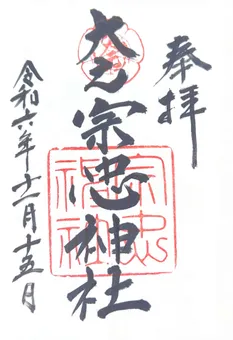 奉拝
大元宗忠神社
宗忠
神社
令和六年十一月十五日